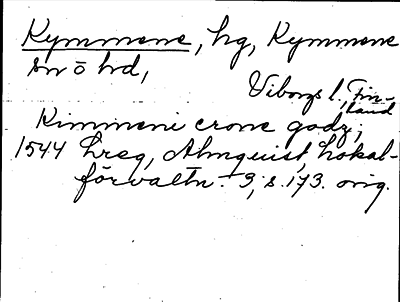 Kymmene, hg, Kymmene
sn o hd,
Viborgs l., Fin-
land
Kimmeni crone godz;
1544 hreg, Almquist, Lokal-
förvaltn. 3, s. 173. orig.